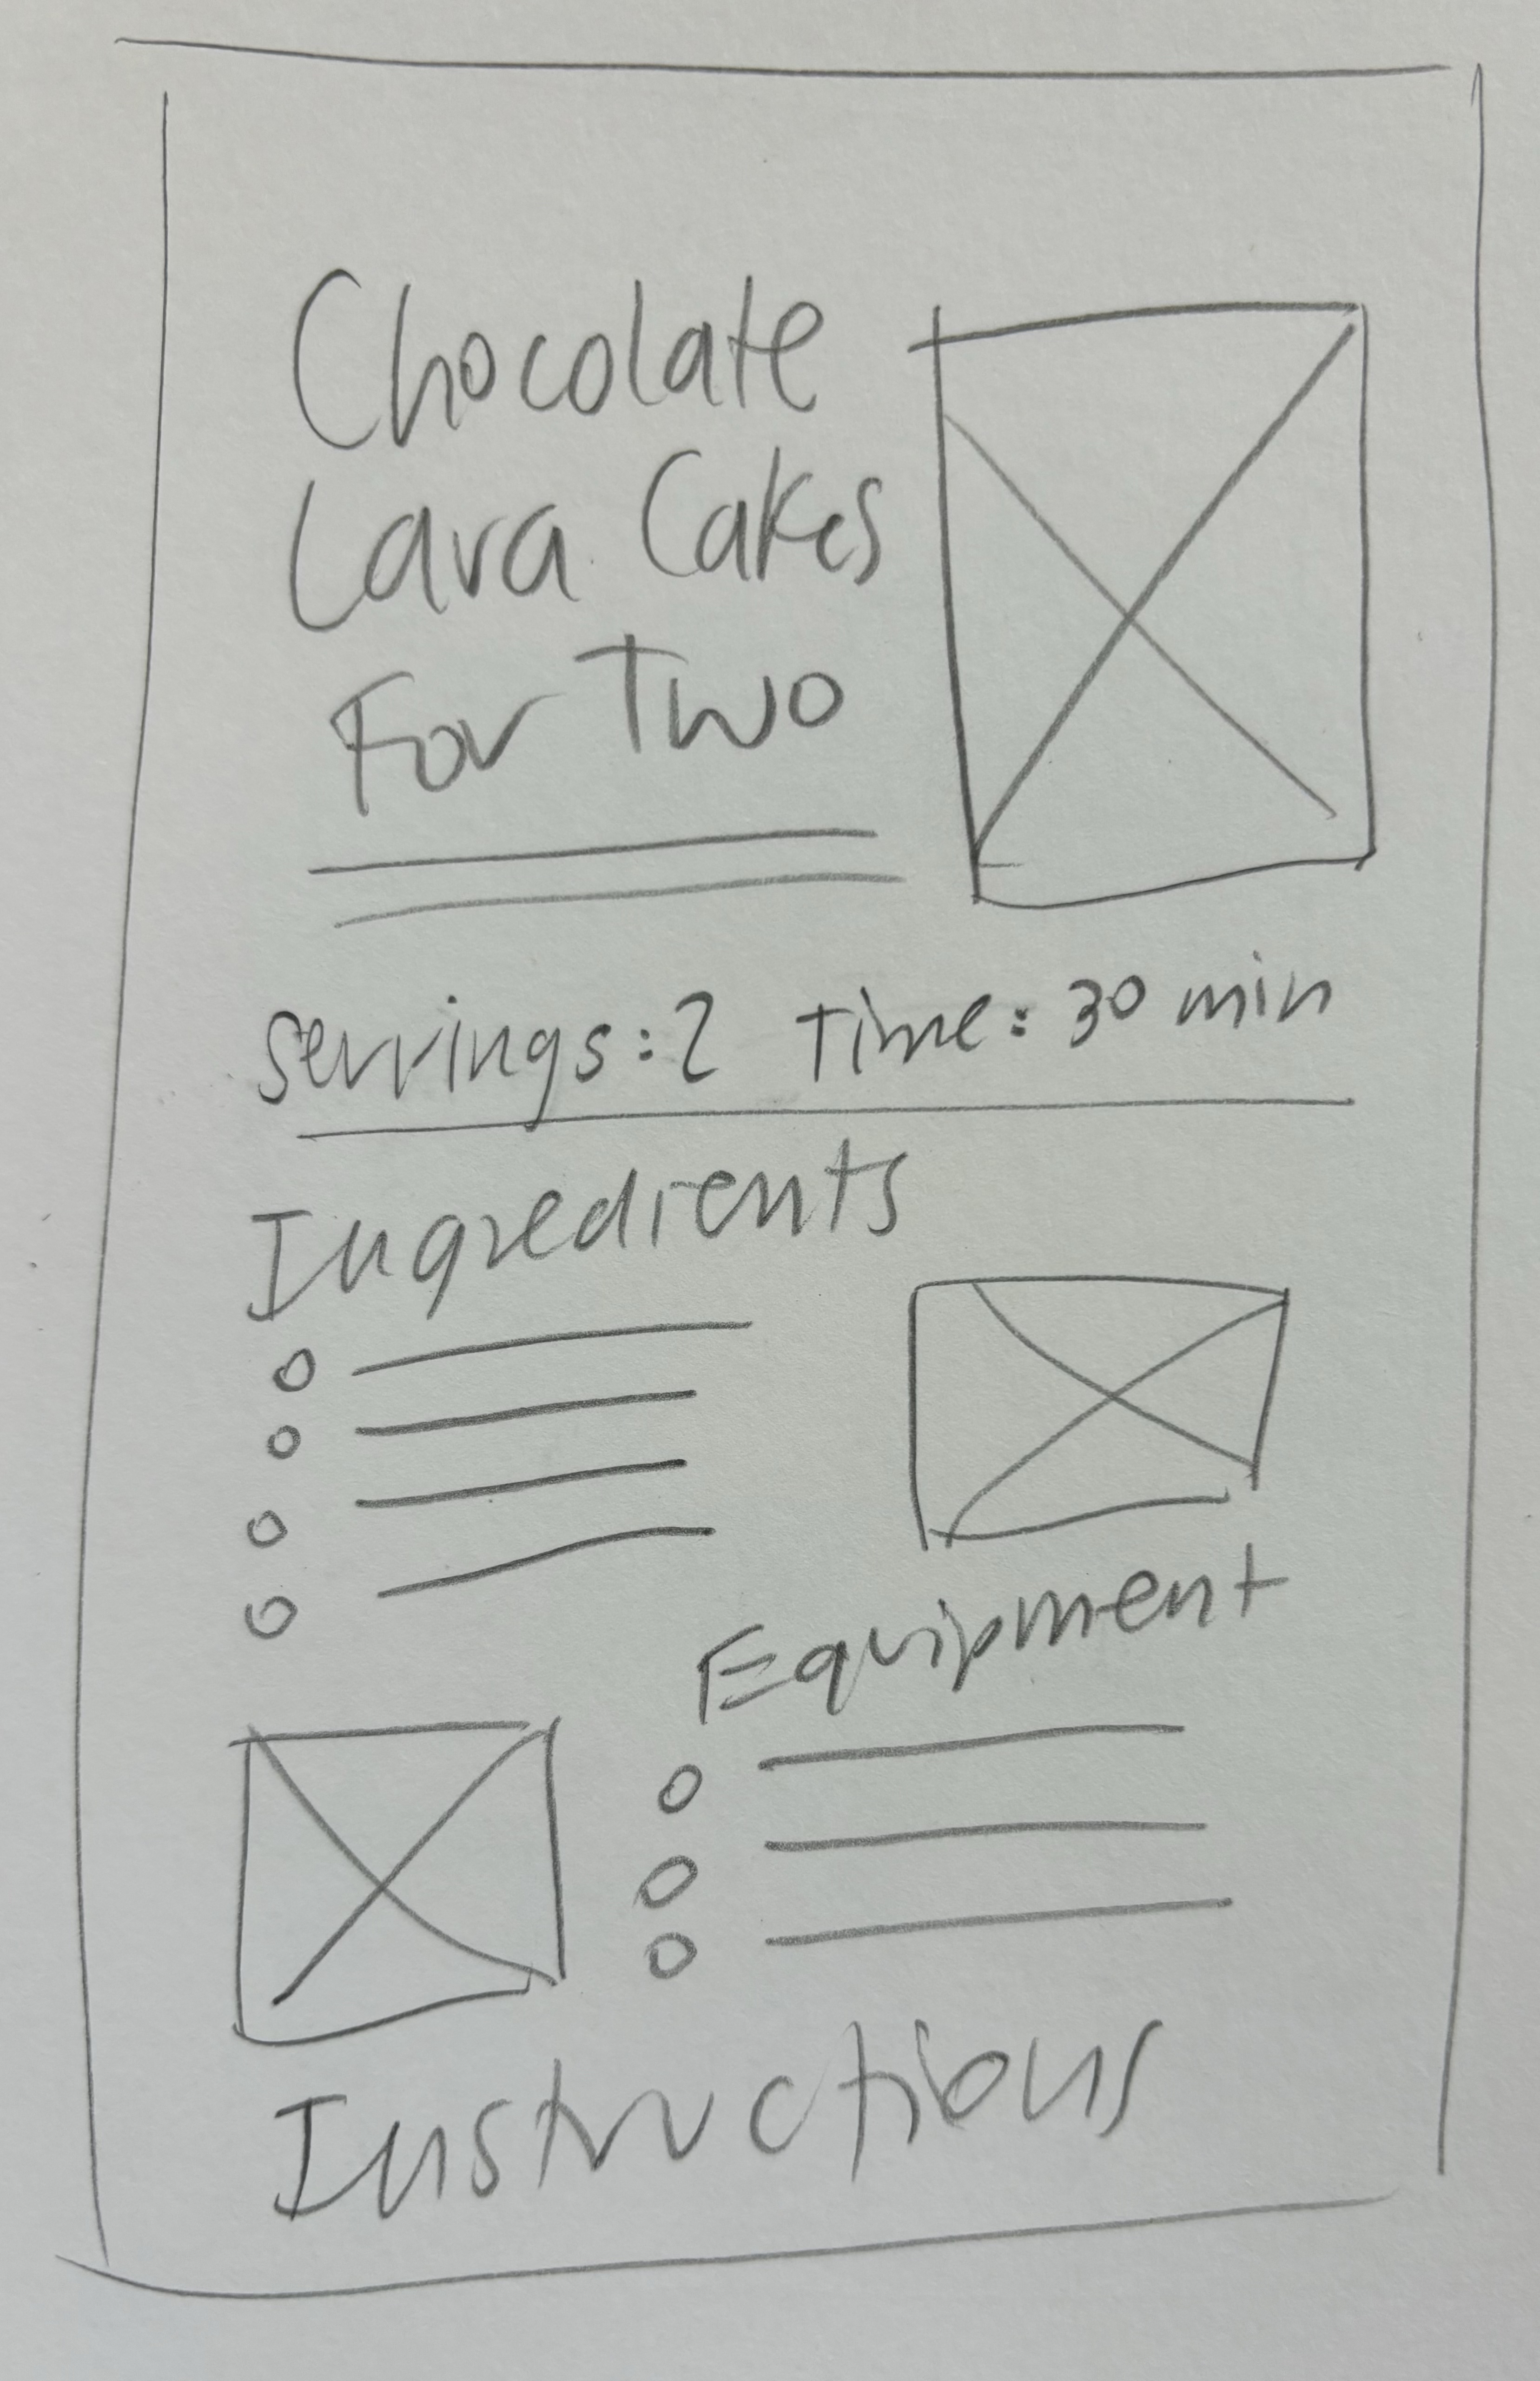 Chocolate
Lava Cakes
For Two
Servings: 2 Time: 30 min
Ingredients
Equipment
Instructions